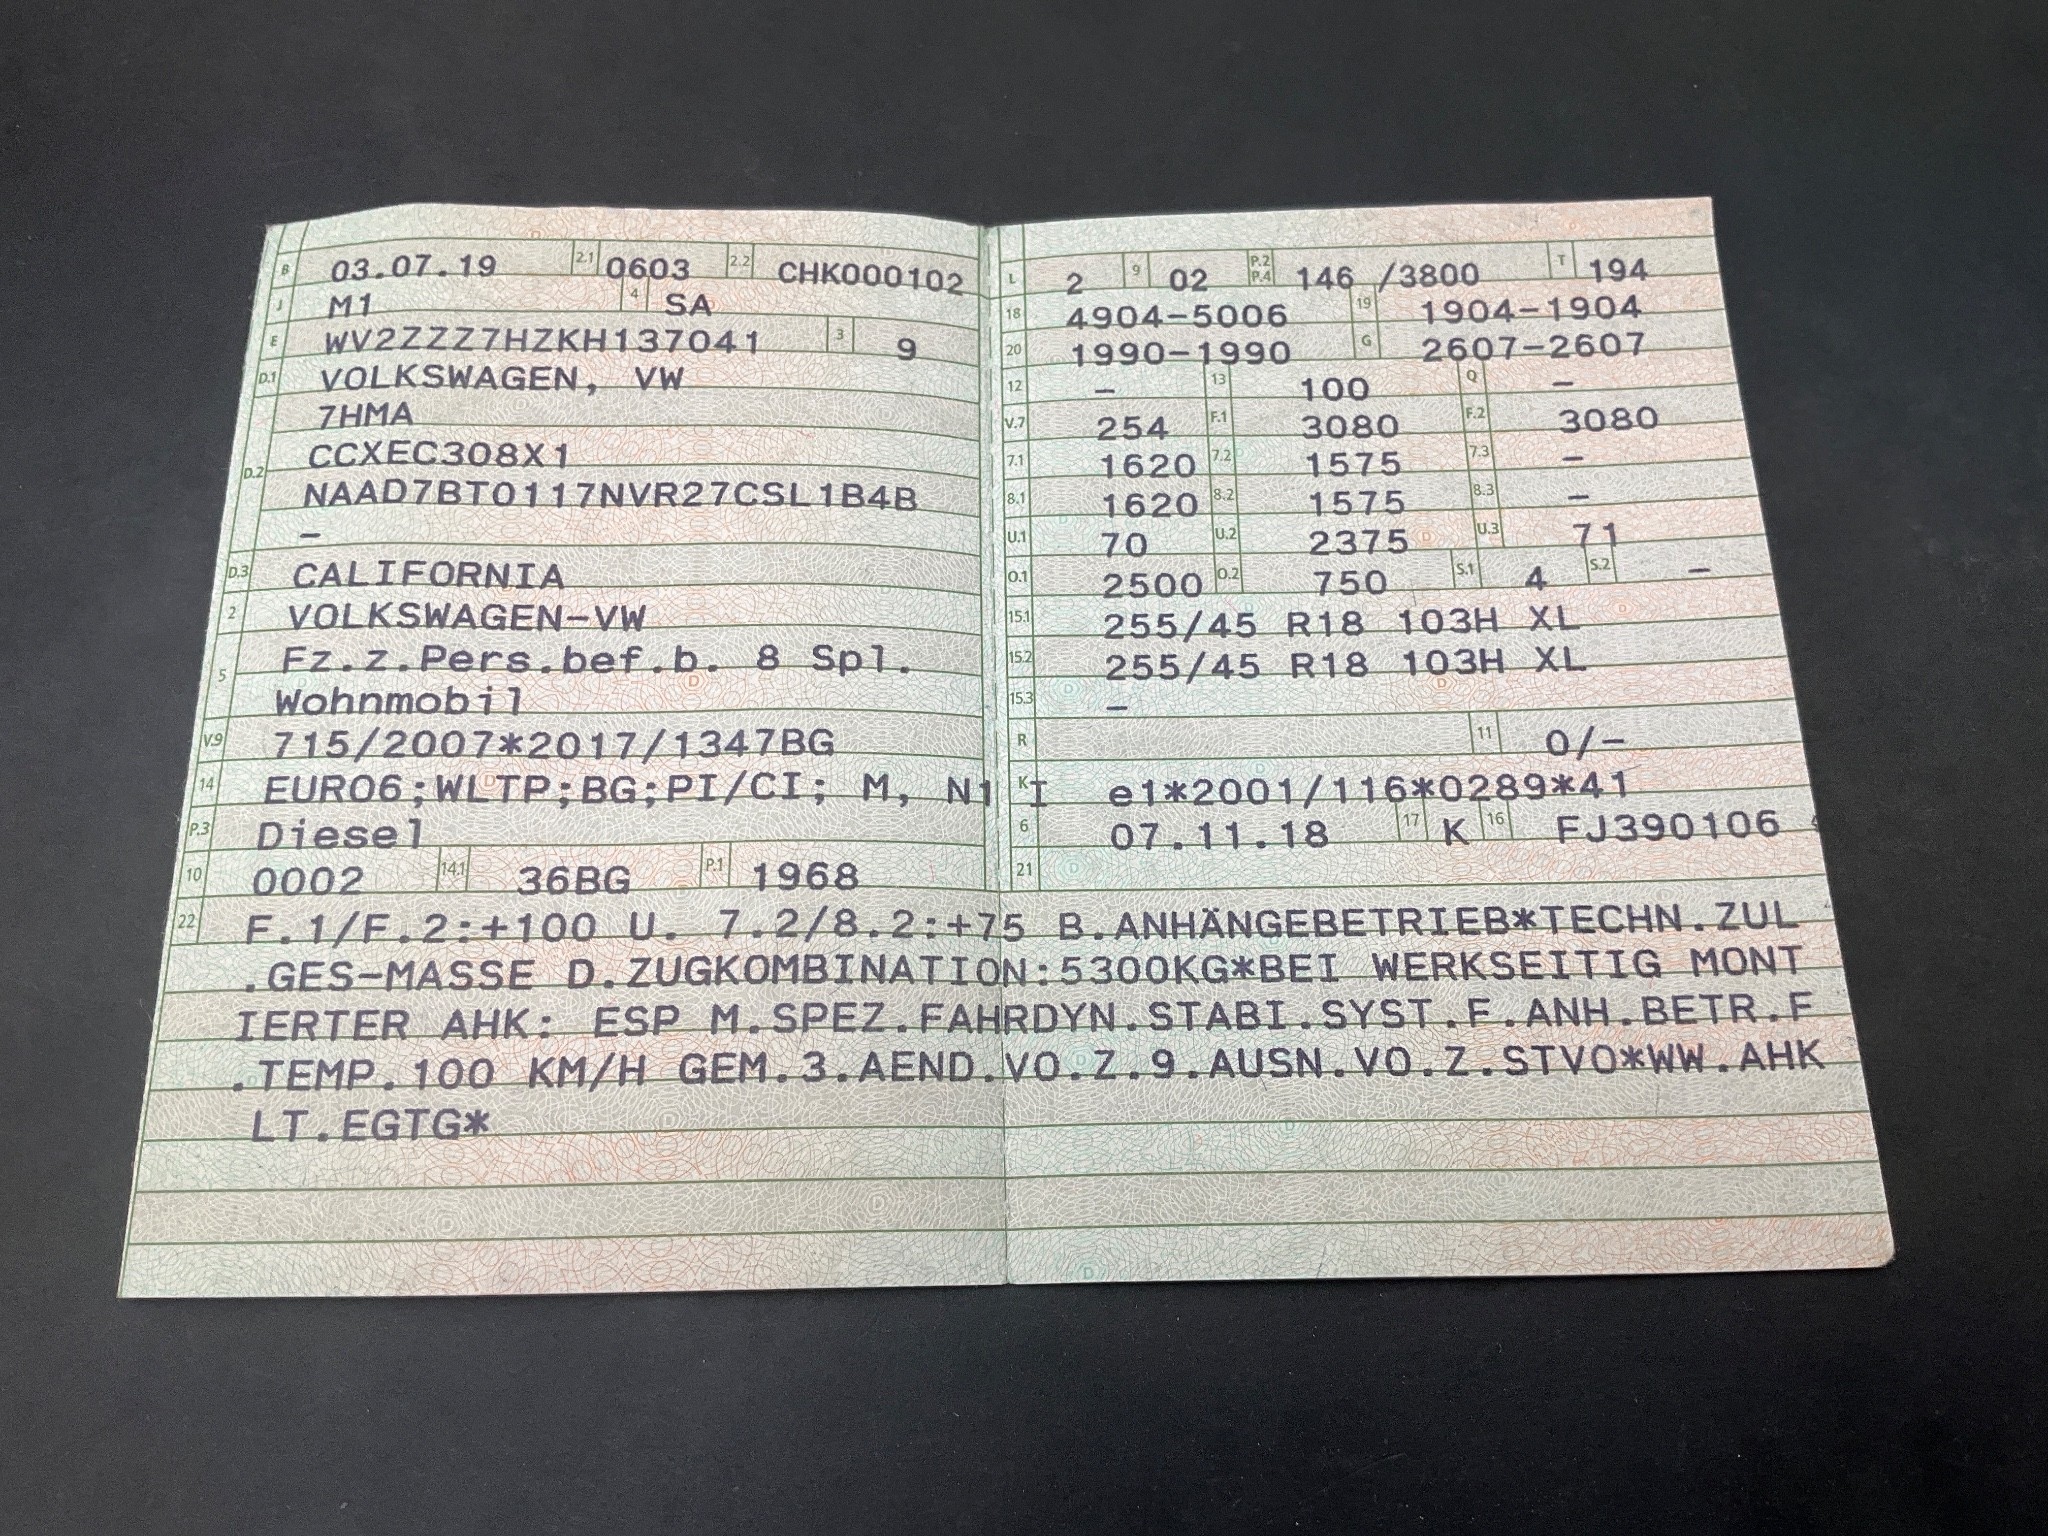 B 03.07.19 2.1 0603 2.2 CHK000102
J M1 4 SA
E WV2ZZZ7HZKH137041 3 9
D.1 VOLKSWAGEN, VW
7HMA
D.2 CCXEC308X1
NAAD7BT0117NVR27CSL1B4B
–
D.3 CALIFORNIA
2 VOLKSWAGEN-VW
5 Fz.z.Pers.bef.b. 8 Spl.
Wohnmobil
V.9 715/2007*2017/1347BG
14 EURO6;WLTP;BG;PI/CI; M, N1 I
P.3 Diesel
10 0002 14.1 36BG P.1 1968
L 2 9 02 P.2 P.4 146 /3800 T 194
18 4904-5006 19 1904-1904
20 1990-1990 G 2607-2607
12 – 13 100 Q –
V.7 254 F.1 3080 F.2 3080
7.1 1620 7.2 1575 7.3 –
8.1 1620 8.2 1575 8.3 –
U.1 70 U.2 2375 U.3 71
O.1 2500 O.2 750 S.1 4 S.2 –
15.1 255/45 R18 103H XL
15.2 255/45 R18 103H XL
15.3 –
R 11 0/-
K e1*2001/116*0289*41
6 07.11.18 17 K 16 FJ390106
21
22 F.1/F.2:+100 U. 7.2/8.2:+75 B.ANHÄNGEBETRIEB*TECHN.ZUL
.GES-MASSE D.ZUGKOMBINATION:5300KG*BEI WERKSEITIG MONT
IERTER AHK: ESP M.SPEZ.FAHRDYN.STABI.SYST.F.ANH.BETR.F
.TEMP.100 KM/H GEM.3.AEND.VO.Z.9.AUSN.VO.Z.STVO*WW.AHK
LT.EGTG*